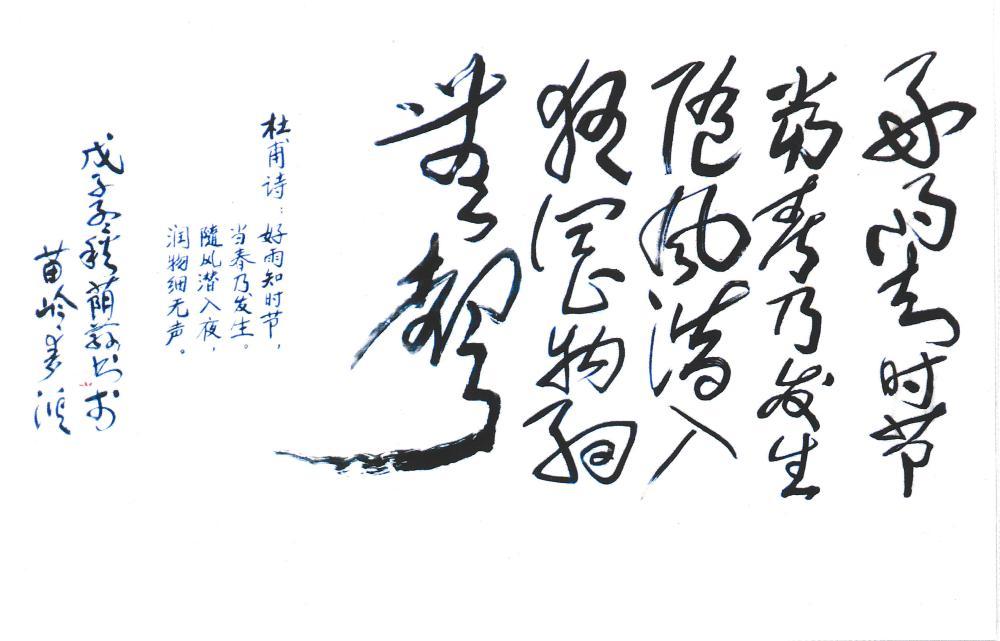 好雨知时节
当春乃发生
随风潜入
夜润物细
无声
杜甫诗：好雨知时节，
当春乃发生。
隨风潜入夜，
润物细无声。
戊子孟秋荫荪书于
苗岭